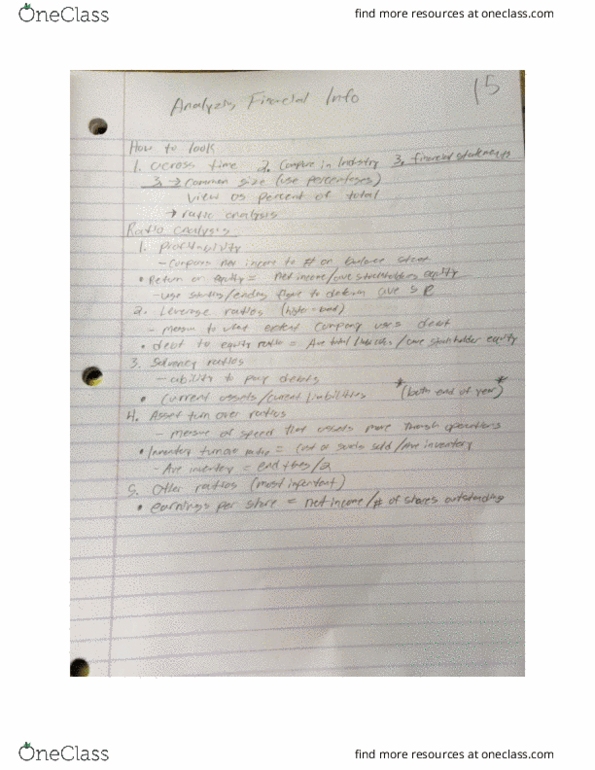 OneClass
find more resources at oneclass.com
15
Analyzing Financial Info
How to look
1. across time 2. Compare in Industry 3. financial statements
3. → common size (use percentages)
view as percent of total
→ ratio analysis
Ratio analysis
1. Profitability
- Compares net income to # on balance sheet
• Return on Equity = net income/ave stockholders equity
- use starting/ending figure to determ ave S E
2. Leverage ratios (high = bad)
- measure to what extent company uses debt
• debt to equity ratio = Ave total liabilities / ave stockholder equity
3. Solvency ratios
- ability to pay debts
• Current assets/current liabilities *(both end of year)*
4. Asset turn over ratios
- measure of speed that assets move through operations
• Inventory turnover ratio = cost of goods sold / Ave inventory
- Ave inventory = end + beg / 2
5. Other ratios (most important)
• earnings per share = net income / # of shares outstanding
OneClass
find more resources at oneclass.com